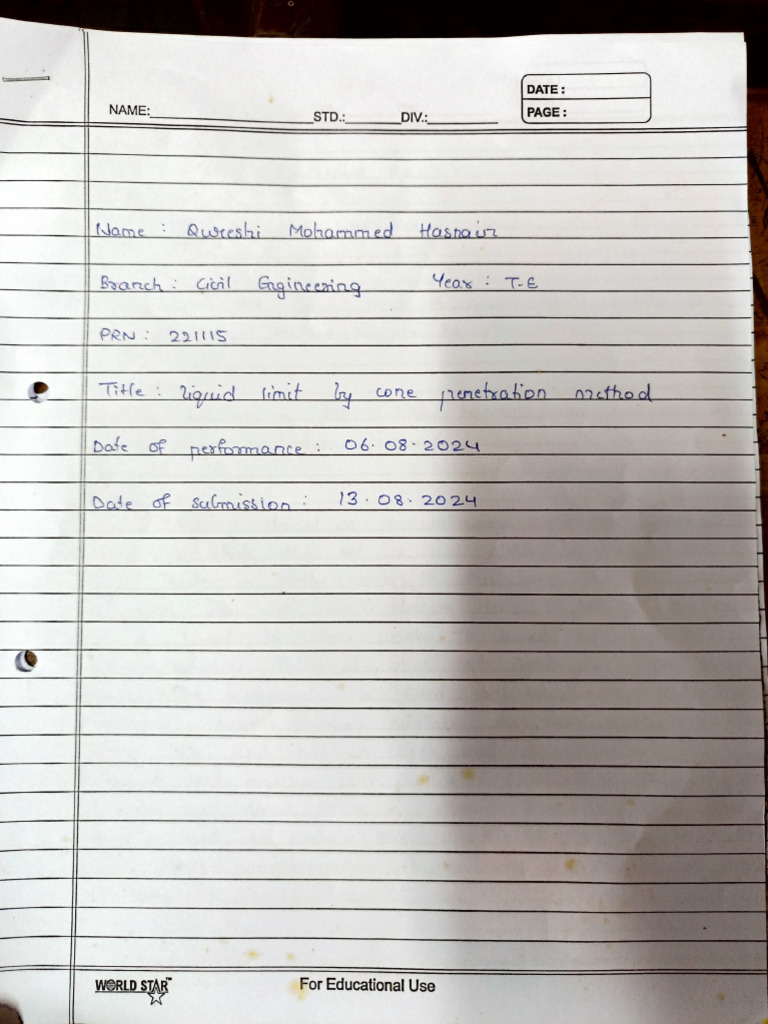 NAME: STD.: DIV.: DATE :
PAGE :
Name : Qureshi Mohammed Hasnain
Branch : Civil Engineering Year : T.E
PRN : 221115
Title : liquid limit by cone penetration method
Date of performance : 06.08.2024
Date of submission : 13.08.2024
WORLD STAR™ For Educational Use